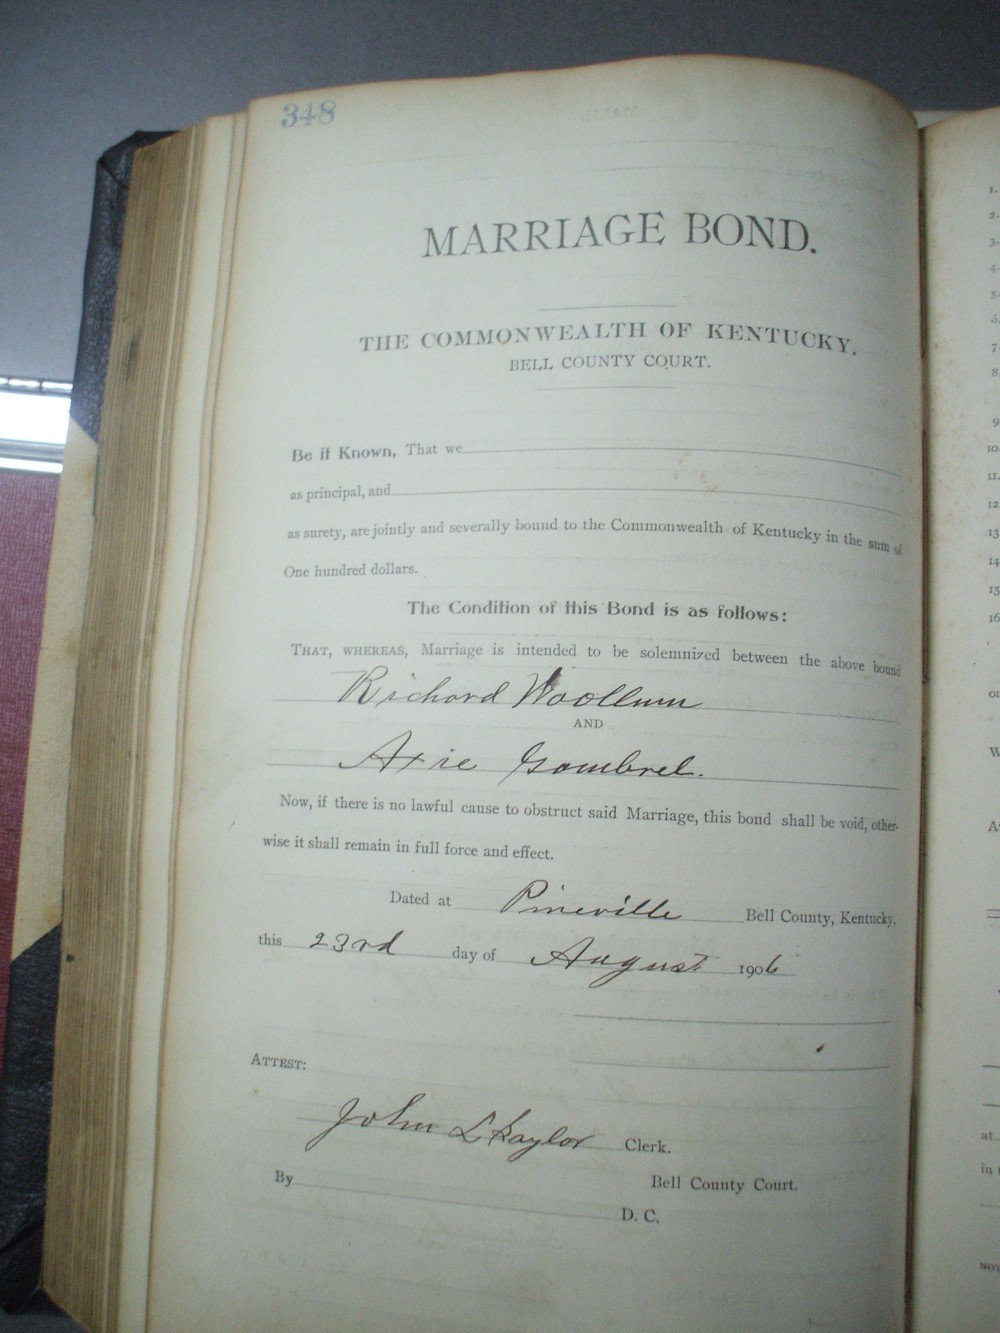 348
MARRIAGE BOND.
THE COMMONWEALTH OF KENTUCKY.
BELL COUNTY COURT.
Be it Known, That we
as principal, and
as surety, are jointly and severally bound to the Commonwealth of Kentucky in the sum of
One hundred dollars.
The Condition of this Bond is as follows:
THAT, WHEREAS, Marriage is intended to be solemnized between the above bound
Richard Woollum
AND
Axie Gombrel.
Now, if there is no lawful cause to obstruct said Marriage, this bond shall be void, other-
wise it shall remain in full force and effect.
Dated at Pineville Bell County, Kentucky,
this 23rd day of August 1906
ATTEST:
John L Kaylor Clerk.
By Bell County Court.
D. C.
1.
2.
3.
4.
5.
7.
8.
9
10.
11.
12.
13
14
15
16
at
in